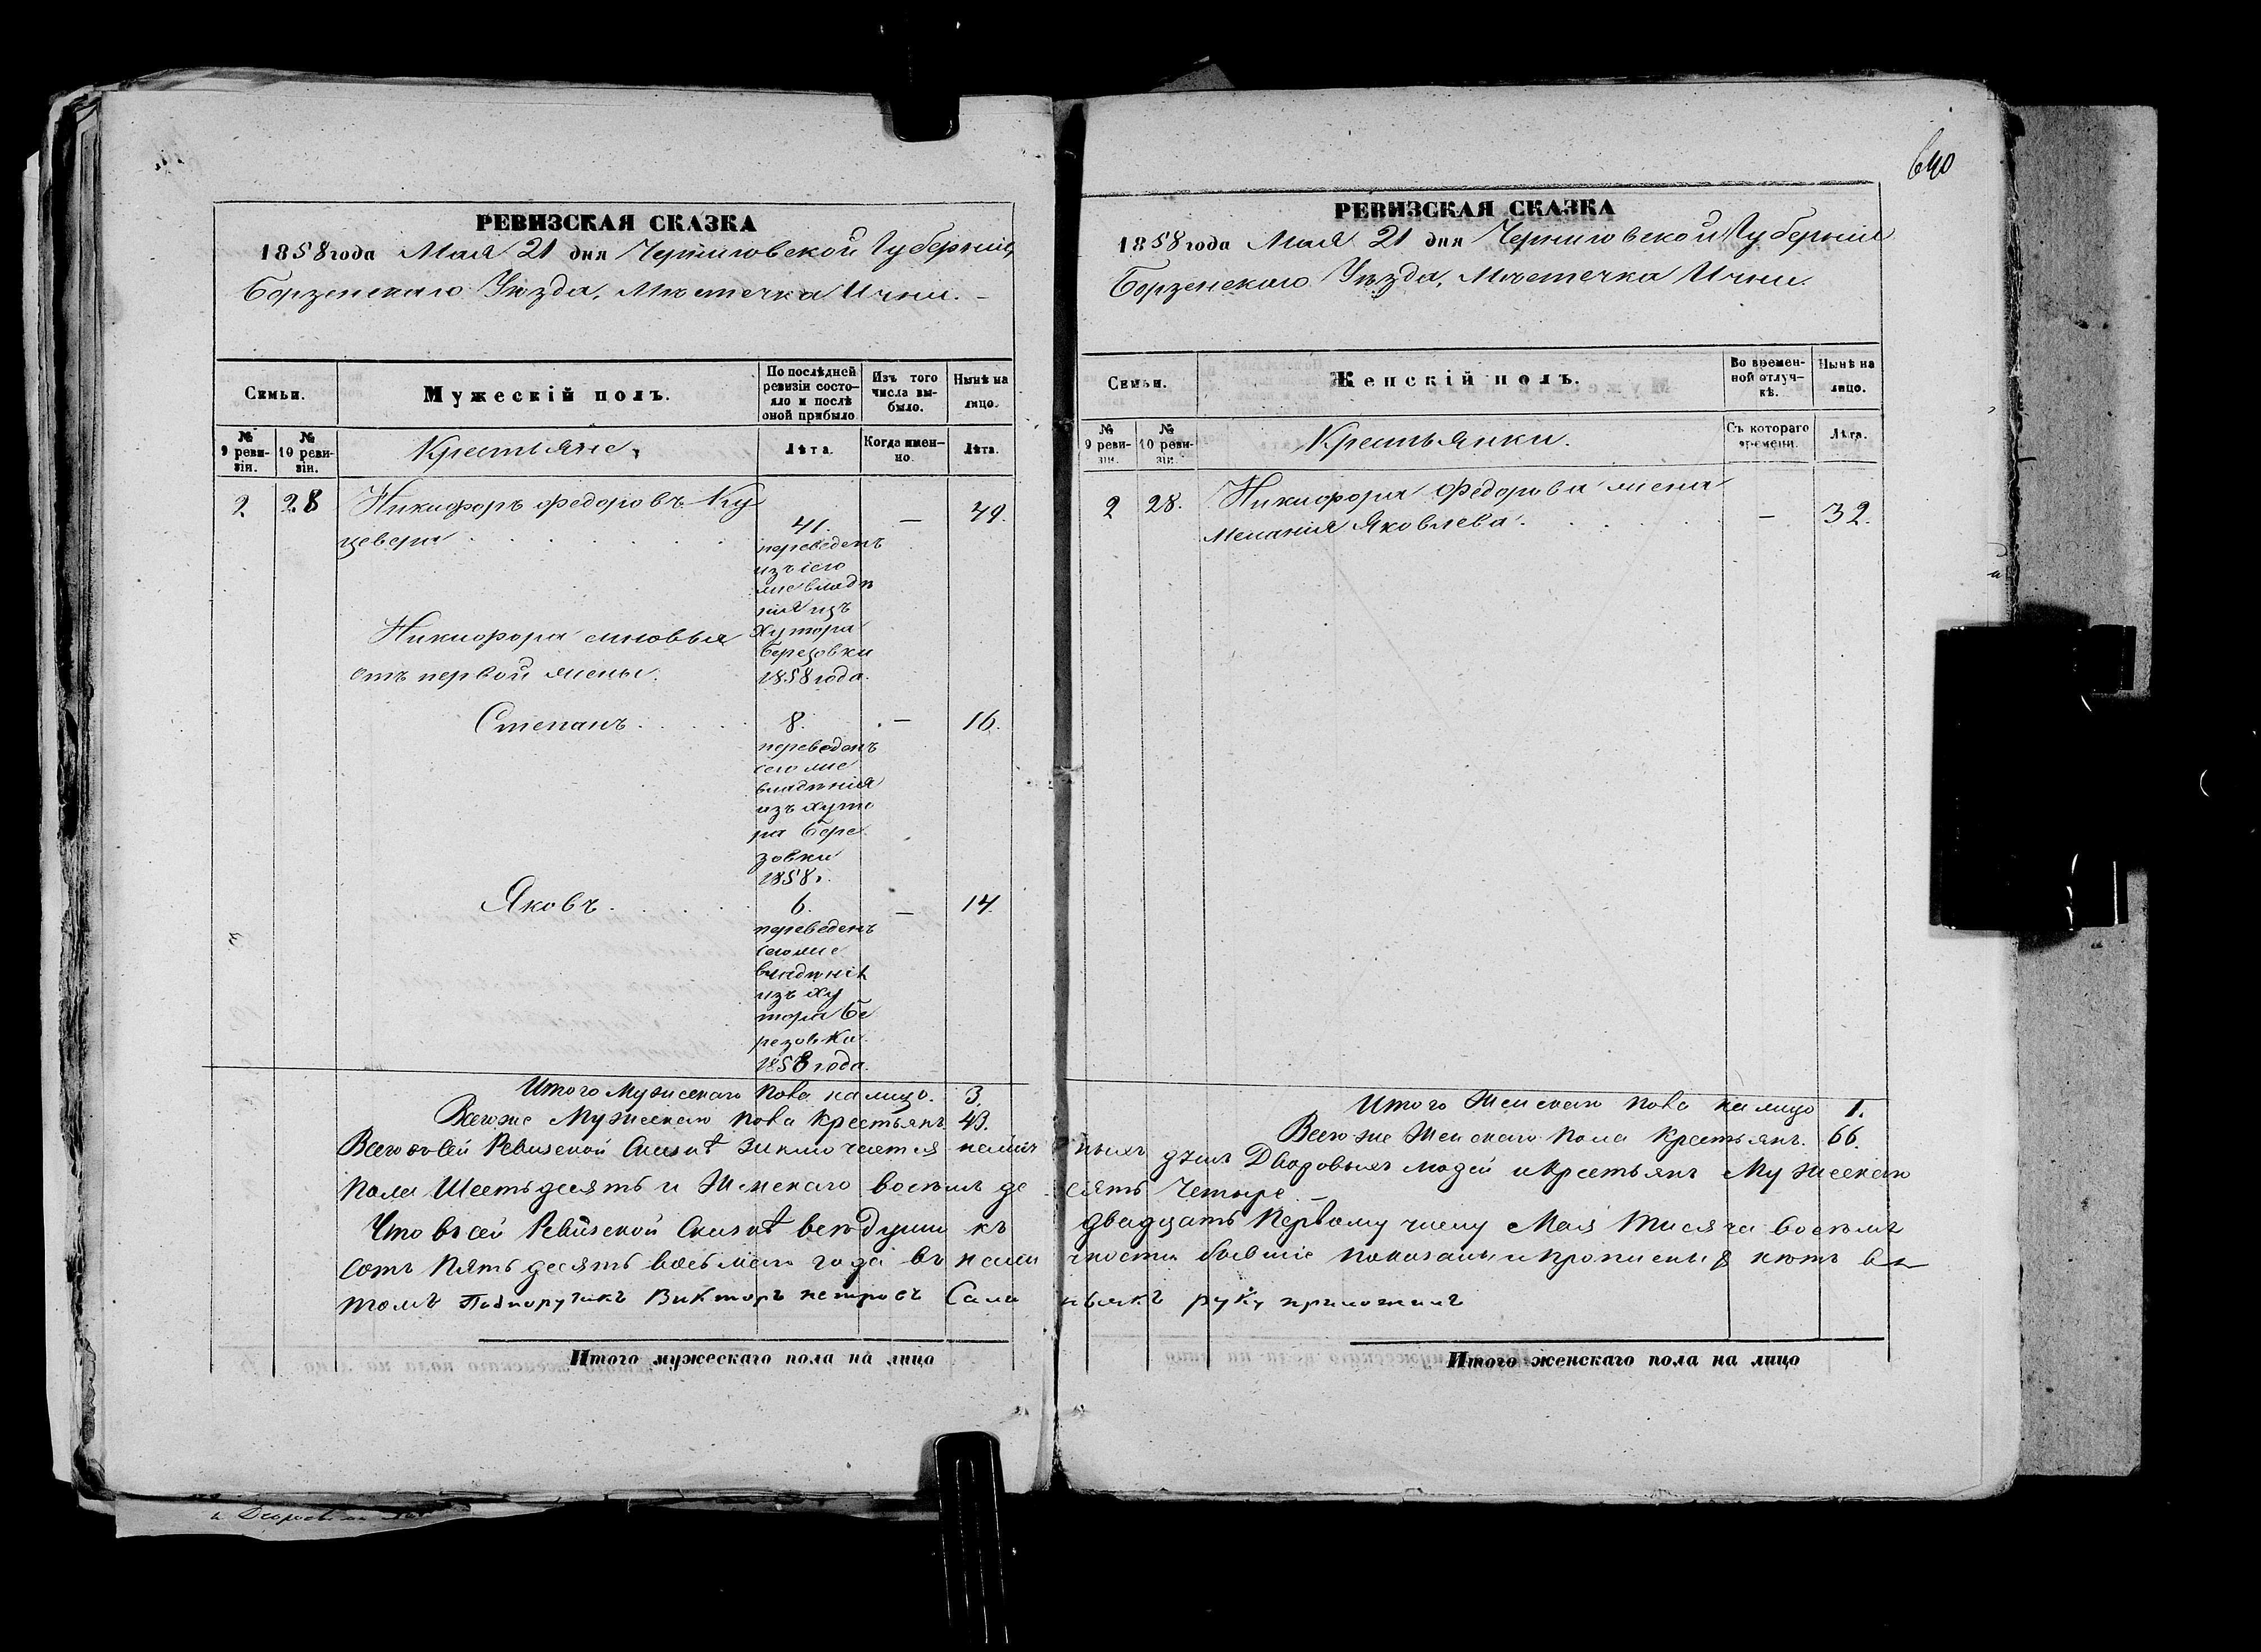 640
РЕВИЗСКАЯ СКАЗКА
1858 года Мая 21 дня Черниговской Губерніи,
Борзенскаго Уѣзда, Мѣстечка Ични.
Семьи.
Мужескій полъ.
По послѣдней ревизіи состояло и послѣ оной прибыло
Изъ того числа выбыло.
Нынѣ на лицо.
№ 9 ревизіи.
№ 10 ревизіи.
Крестьяне.
Лѣта.
Когда именно.
Лѣта.
2 28 Никифоръ Федоровъ Ку
цевера 41. — 49.
переведенъ
изъ сего
же владѣ
нія изъ
Хутора
Березовки
1858 года.
Никифора сыновья
отъ первой жены.
Степанъ 8. — 16.
переведенъ
сего же
владѣнія
изъ хуто
ра Бере
зовки
1858.
Яковъ 6. — 14.
переведенъ
сего же
владѣнія
изъ ху
тора Бе
резовки
1858 года.
Итого Мужескаго пола на лицо. 3.
Всего же Мужескаго пола крестьянъ 43.
РЕВИЗСКАЯ СКАЗКА
1858 года Мая 21 дня Черниговской Губерніи
Борзенскаго Уѣзда, Мѣстечка Ични.
Семьи.
Женскій полъ.
Во временной отлучкѣ.
Нынѣ на лицо.
№ 9 ревизіи.
№ 10 ревизіи.
Крестьянки.
Съ котораго времени.
Лѣта.
2 28. Никифора Федорова жена
Меланія Яковлева. — 32.
Итого Женскаго пола на лицо 1.
Всего же Женскаго пола крестьянъ. 66.
Всего въ сей Ревизской Сказкѣ заключается наличныхъ душъ Дворовыхъ людей и крестьянъ Мужескаго
пола Шестьдесятъ и Женскаго восемьдесятъ Четыре. —
Что въ сей Ревизской Сказкѣ все души къ двадцать первому числу Мая Тысяча восемь
сотъ пятьдесятъ восьмаго года въ наличности бывшіе показаны и прописныхъ нетъ въ
томъ Подпоручикъ Викторъ петровъ руку приложилъ
Итого мужескаго пола на лицо
Итого женскаго пола на лицо